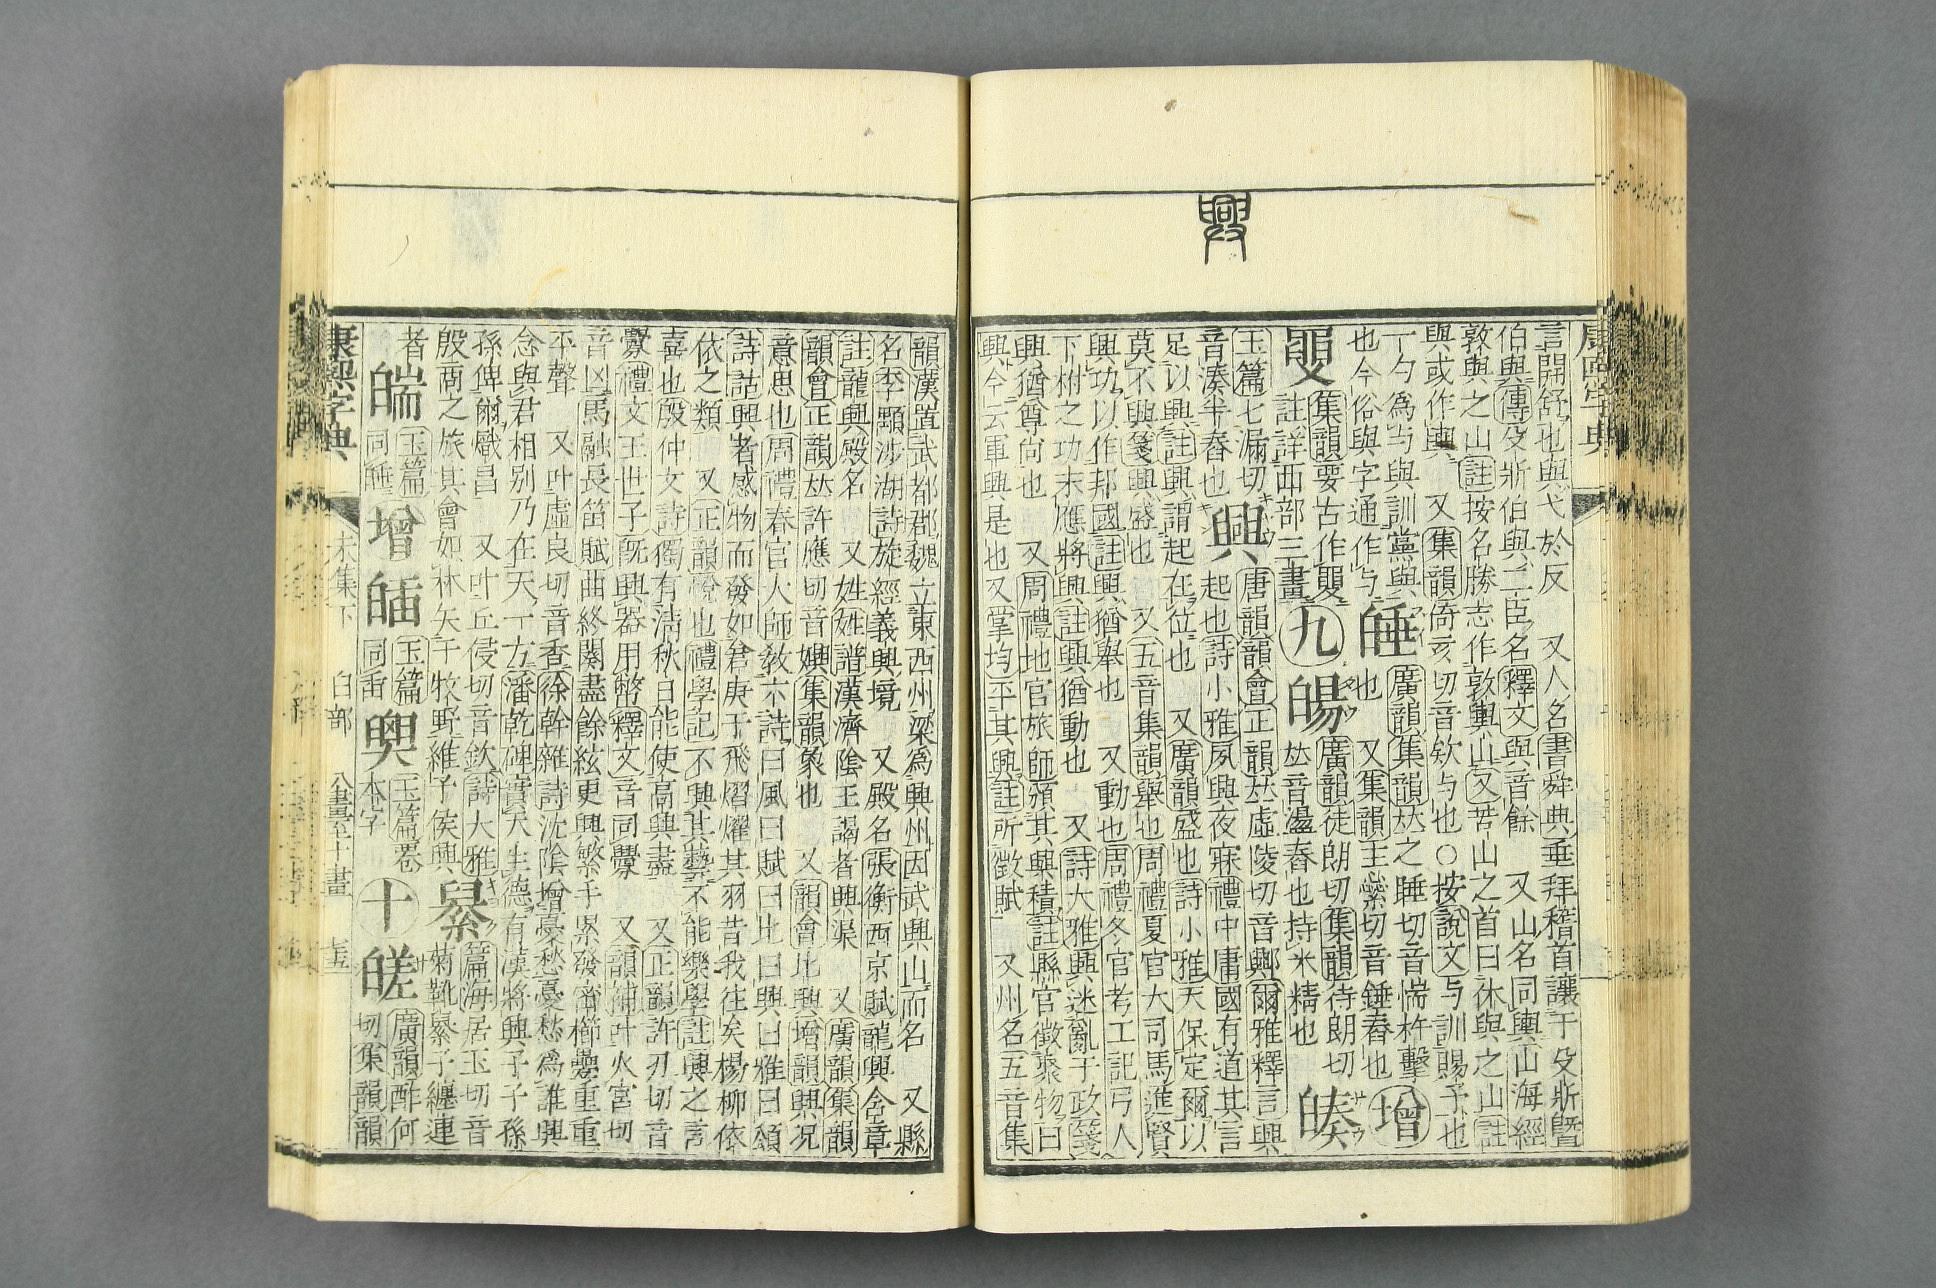 興
康熙字典
言開舒也與弋於反 又人名書舜典垂拜稽首讓于殳斨曁
伯與傳殳斨伯與二臣名釋文與音餘 又山名同輿山海經
敦與之山註按名勝志作敦輿山又苦山之首曰休與之山註
與或作輿 又集韻倚亥切音欸与也○按說文与訓賜予也
一勺為与與訓黨與
也今俗與字通作与
廣韻集韻𠀤之睡切音惴杵擊
也 又集韻主橤切音錘舂也
增
集韻要古作
註詳襾部三畫
九
廣韻徒朗切集韻待朗切
𠀤音盪舂也持米精也
玉篇七漏切
音湊半舂也
興
唐韻韻會正韻𠀤虛陵切音興爾雅釋言興
起也詩小雅夙興夜寐禮中庸國有道其言
足以興註興謂起在位也 又廣韻盛也詩小雅天保定爾以
莫不興箋興盛也 又五音集韻舉也周禮夏官大司馬進賢
興功以作邦國註興猶舉也 又動也周禮冬官考工記弓人
下柎之功末應將興註興猶動也 又詩大雅興迷亂于政箋
興猶尊尚也 又周禮地官旅師頒其興積註縣官徵聚物曰
興今云軍興是也又掌均平其興註所徵賦 又州名五音集
韻漢置武都郡魏立東西州梁為興州因武興山而名 又縣
名李顒涉湖詩旋經義興境 又殿名張衡西京賦龍興含章
註龍興殿名 又姓姓譜漢濟陰王謁者興渠 又廣韻集韻
韻會正韻𠀤許應切音嬹集韻象也 又韻會比興增韻興况
意思也周禮春官大師敎六詩曰風曰賦曰比曰興曰雅曰頌
詩詁興者感物而發如倉庚于飛熠燿其羽昔我往矣楊柳依
依之類 又正韻悅也禮學記不興其藝不能樂學註興之言
喜也殷仲文詩獨有淸秋日能使高興盡 又正韻許刃切音
釁禮文王世子旣興器用幣釋文音同釁 又韻補叶火宮切
音凶馬融長笛賦曲終闋盡餘絃更興繁手累發密櫛疊重重
平聲 又叶虛良切音香徐幹雜詩沈陰增憂愁憂愁為誰興
念與君相別乃在天一方潘乾碑實天生德有漢將興子子孫
孫俾爾熾昌 又叶丘侵切音欽詩大雅
殷商之旅其會如林矢于牧野維予侯興
篇海居玉切音
菊靴
子纏連
者
玉篇
同
增
玉篇
同
玉篇
本字
十
廣韻酢何
切集韻
康熙字典 未集下 臼部 八畫至十畫